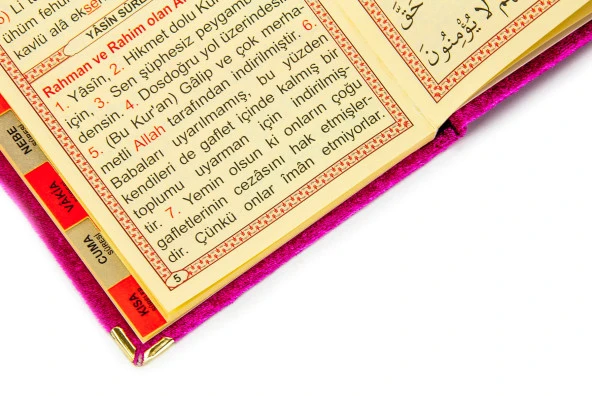 ühüm fehüm
kavlü alâ eksen
YÂSÎN SÛR
Rahman ve Rahim olan A
1. Yâsîn, 2. Hikmet dolu Kur
için, 3. Sen şüphesiz peygamb
densin. 4. Dosdoğru yol üzerindesi
5. (Bu Kur'an) Gâlip ve çok merha-
metli Allah tarafından indirilmiştir. 6.
Babaları uyarılmamış, bu yüzden
kendileri de gaflet içinde kalmış bir
toplumu uyarman için indirilmiş-
tir. 7. Yemin olsun ki onların çoğu
gafletlerinin cezasını hak etmişler-
dir. Çünkü onlar îmân etmiyorlar.
5
لَا يُؤْمِنُونَ
NEBE
SÛRESİ
VÂKIA
CUMA
SÛRESİ
KISA